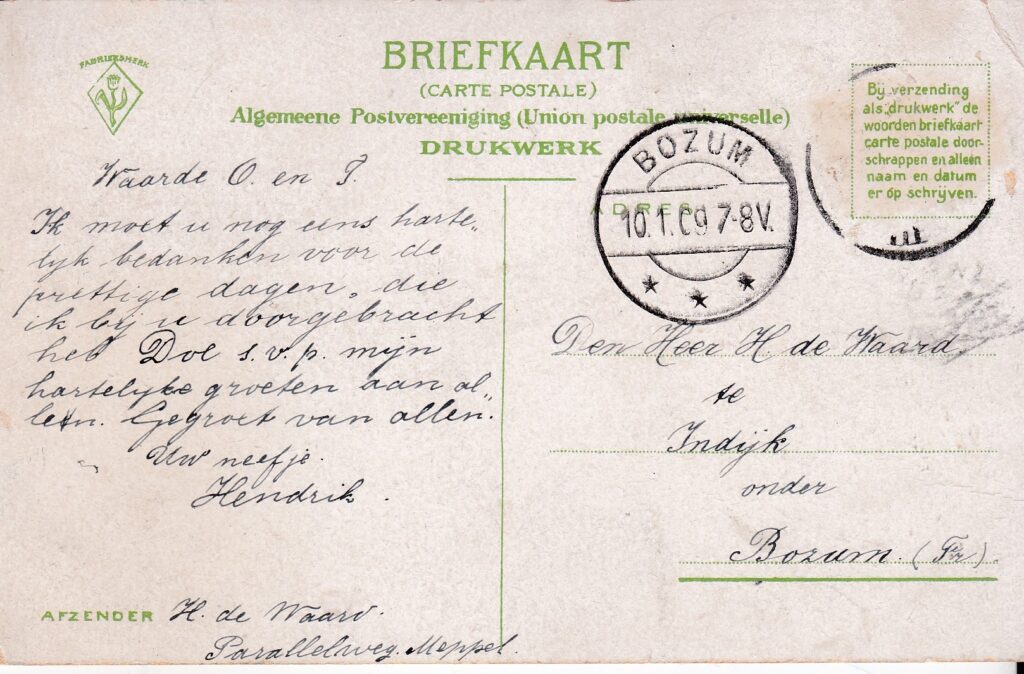 FABRIEKSMERK
BRIEFKAART
(CARTE POSTALE)
Algemeene Postvereeniging (Union postale universelle)
DRUKWERK
Bij verzending
als „drukwerk" de
woorden briefkaart
carte postale door-
schrappen en alleen
naam en datum
er op schrijven.
BOZUM
10.1.09 7-8V.
ADRES
Waarde O. en T.
Ik moet u nog eens harte„
lijk bedanken voor de
prettige dagen, die
ik bij u doorgebracht
heb Doe s.v.p. mijn
hartelijke groeten aan al„
len. Gegroet van allen.
Uw neefje.
Hendrik.
AFZENDER H. de Waard.
Parallelweg. Meppel.
Den Heer H. de Waard
te
Indijk
onder
Bozum. (Fr)